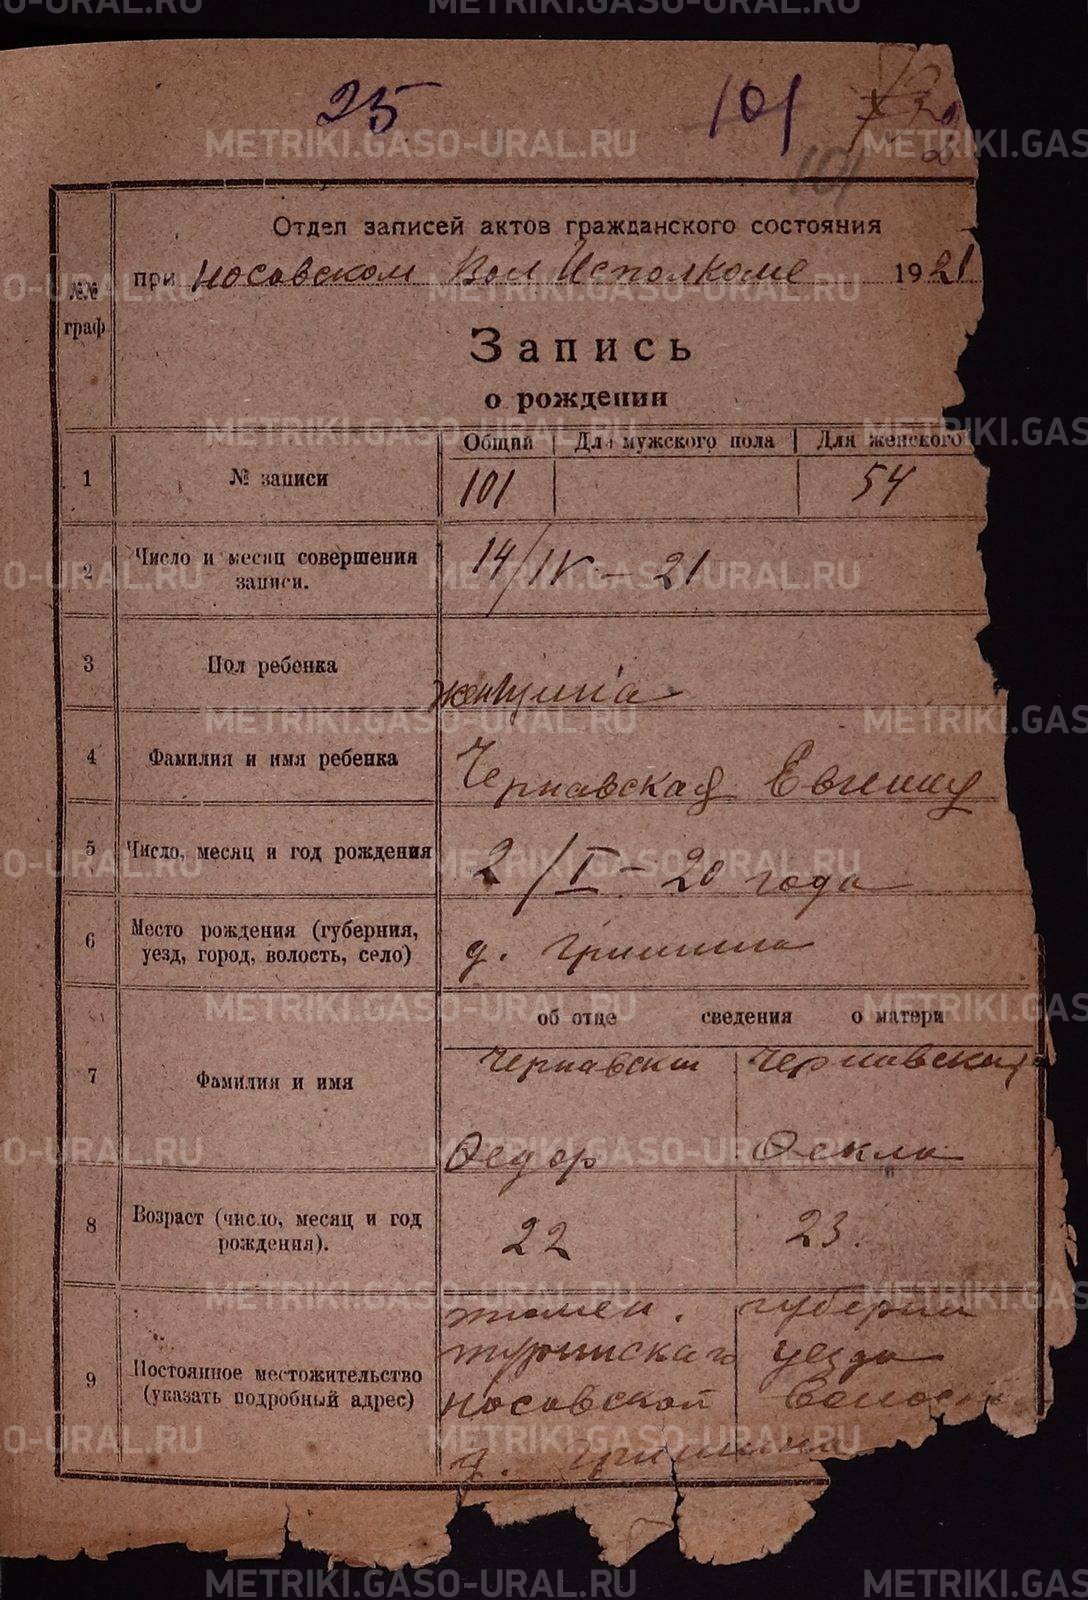 25 101
101
Отдел записей актов гражданского состояния
при Носовском Вол Исполкоме 1921
№№ граф
Запись
о рождении
Общий Для мужского пола Для женского
1 № записи 101 54
2 Число и месяц совершения записи. 14/IV – 21
3 Пол ребенка женщина
4 Фамилия и имя ребенка Чернавская Евгения
5 Число, месяц и год рождения 2/I – 20 года
6 Место рождения (губерния, уезд, город, волость, село) д. Гришина
об отце сведения о матери
7 Фамилия и имя Чернавский Чернавская
Федор Фекла
8 Возраст (число, месяц и год рождения). 22 23.
9 Постоянное местожительство (указать подробный адрес) тюмен. губернии
туринскаго уезда
носовской волост
д. Гришина
METRIKI.GASO-URAL.RU